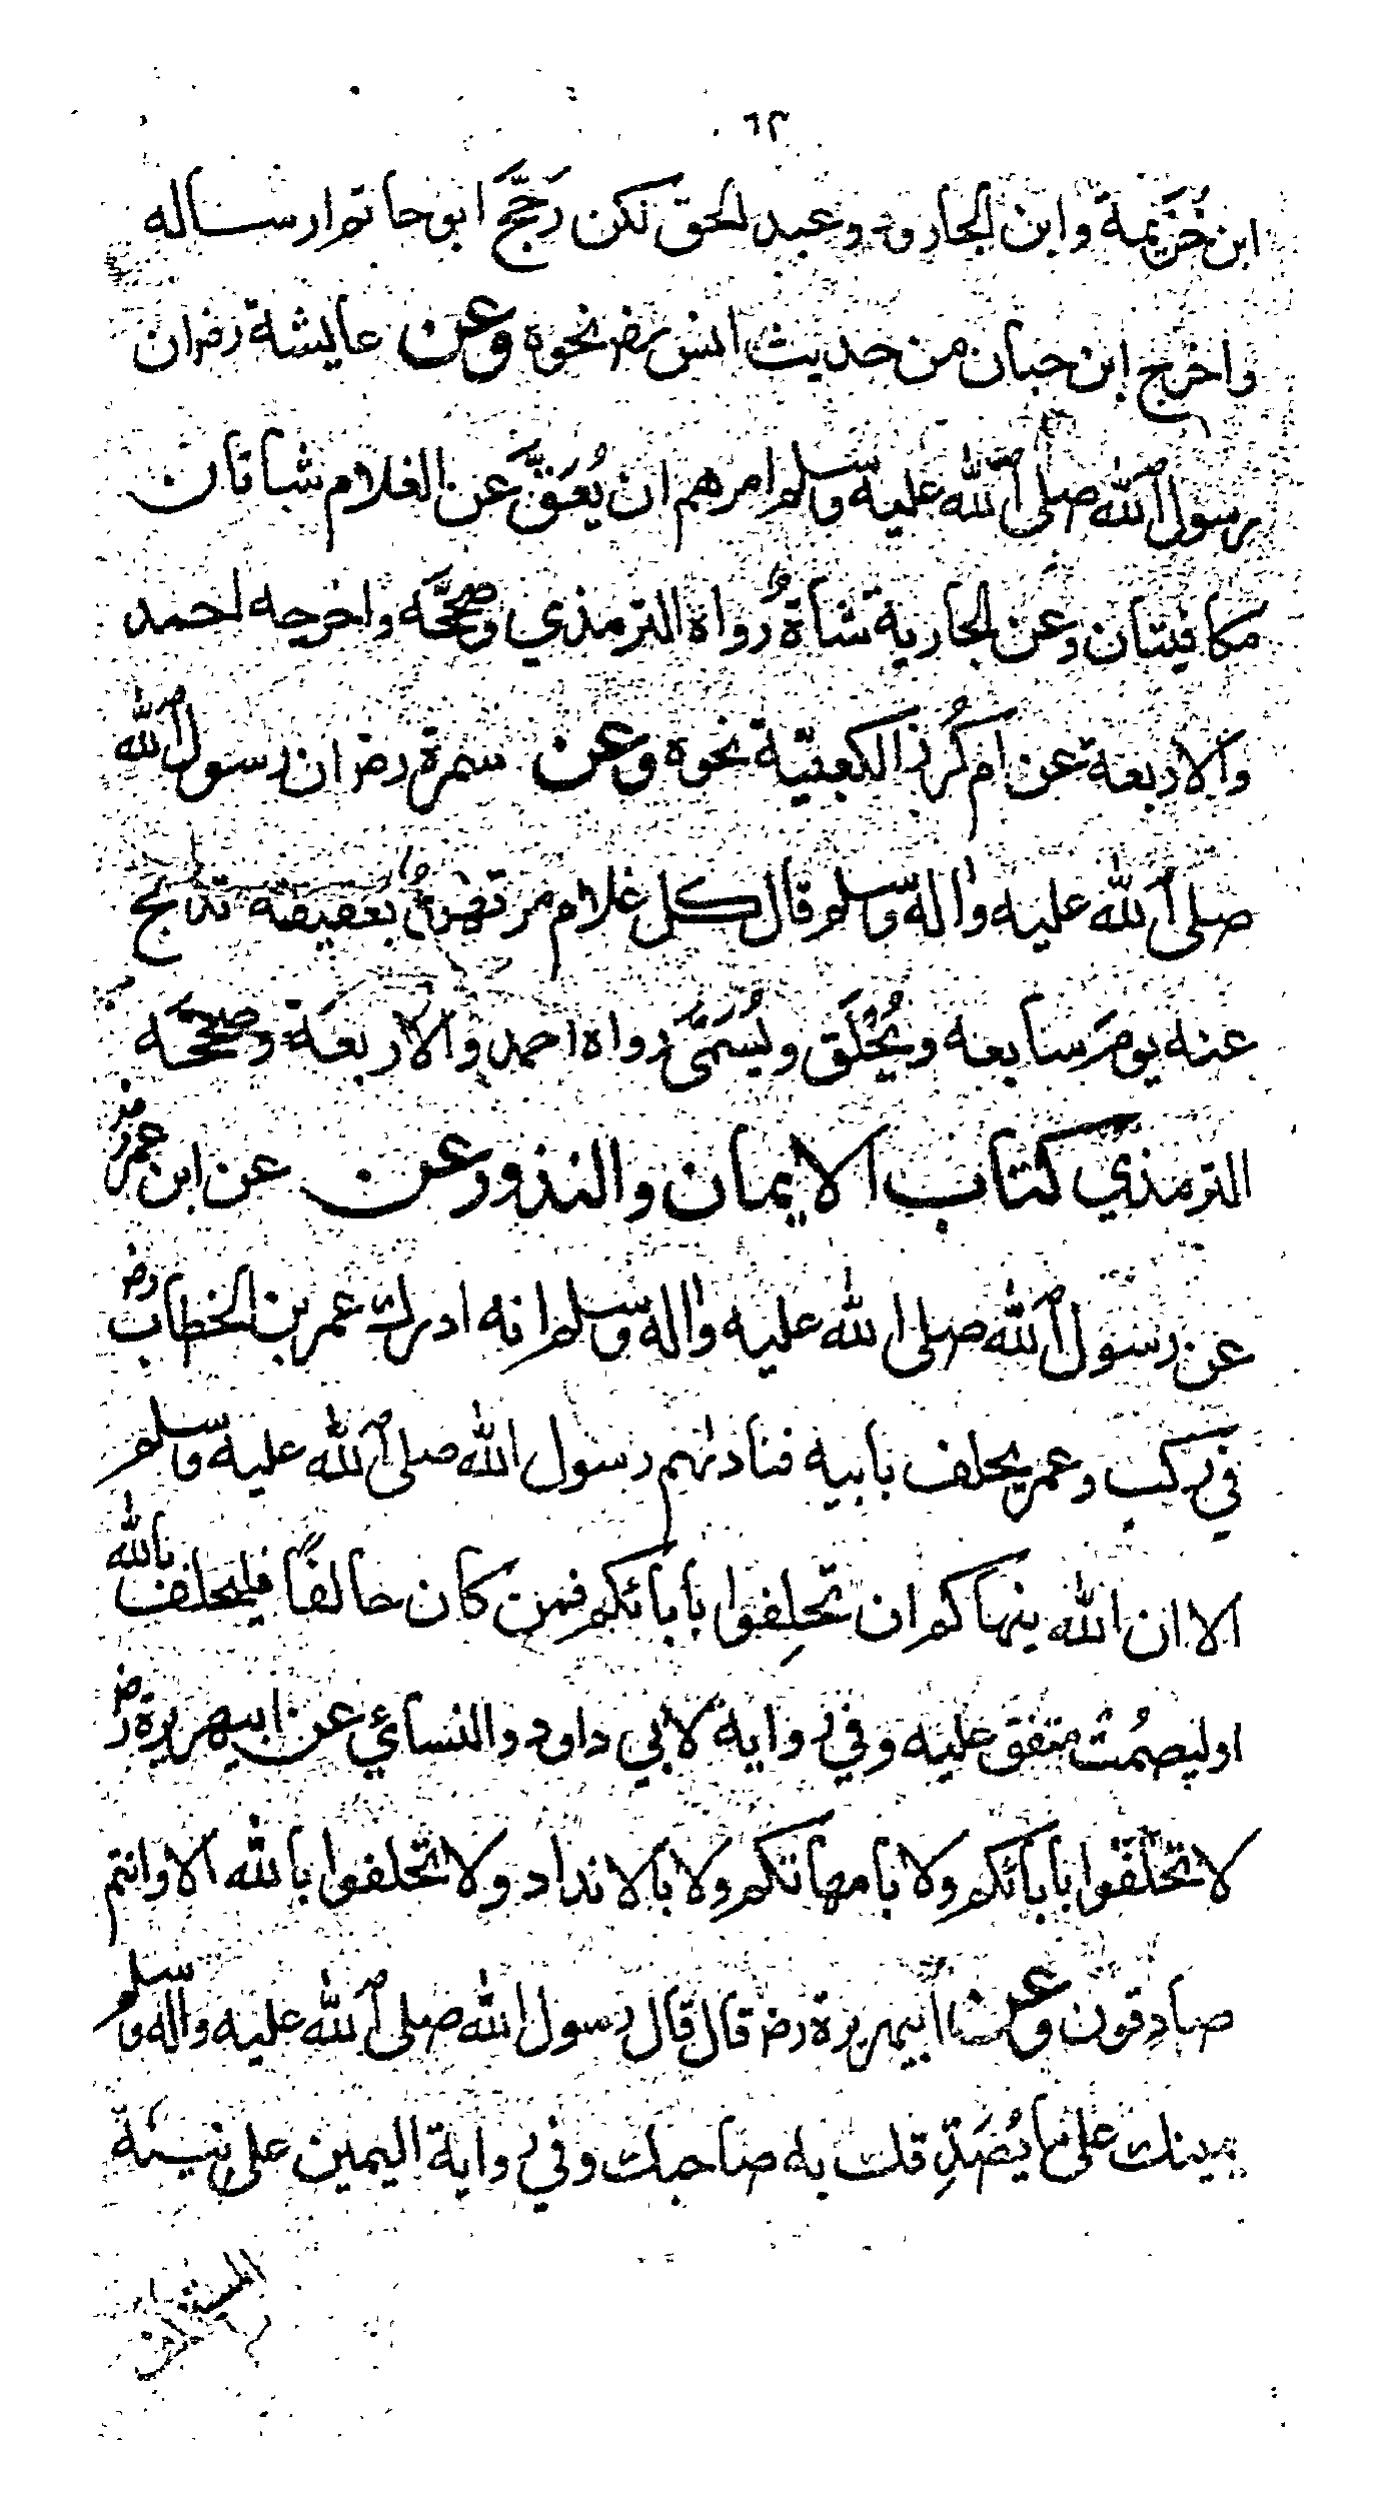 ٦٢
ابن خُزَيمة وابن الجارود وعبد الحق لكن رَجَّحَ ابو حاتم ارساله
واخرج ابن حبان من حديث انس رضـ نحوه وعن عايشة رضـ ان
رسول الله صلى الله عليه وسلم امرهم ان يُعَقَّ عَن الغلام شاتان
مكافيتان وعن الجارية شاةٌ رواه الترمذي وصحَّحَه واخرجه احمد
والاربعة عن ام كُرْز الكعبيّة نحوه وعن سمرة رضـ ان رسول الله
صلى الله عليه واله وسلم قال كل غلام مرتهنٌ بعقيقته تذبح
عنه يومَ سابعه ويُحْلَق ويُسَمَّى رواه احمد والاربعة وصححَه
الترمذي كتاب الايمان والنذور عن عن ابن عمر رضـ
عن رسول الله صلى الله عليه واله وسلم انه ادرك عمر بن الخطاب رضـ
في ركب وعمر يحلف بابيه فنادٰهم رسول الله صلى الله عليه وسلم
الا ان الله ينهاكم ان تحلِفوا بابائكم فمن كان حالفًا فليحلف بالله
او ليصمُت متفق عليه وفي رواية لابي داود والنسائي عن ابيهريرة رضـ
لا تحلفوا بابائكم ولا بامهاتكم ولا بالانداد ولا تحلفوا بالله الا وانتم
صادقون وعن ابيهريرة رضـ قال قال رسول الله صلى الله عليه واله وسلم
يمينك على ما يُصَدِّقك به صاحبك وفي رواية اليمين على نيّة